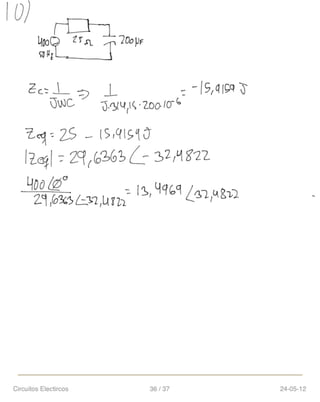 10)
400 25 Ω 200 µF
50 Hz
Zc = 1/JWC ⇒ 1/J·314,15·200 10^-6 = -15,9159 J
Zeq = 25 - 15,9159 J
|Zeq| = 29,6363 ∠-32,4822
400∠0°/29,6363∠-32,4822 = 13,4969 ∠32,4822
Circuitos Electircos 36 / 37 24-05-12